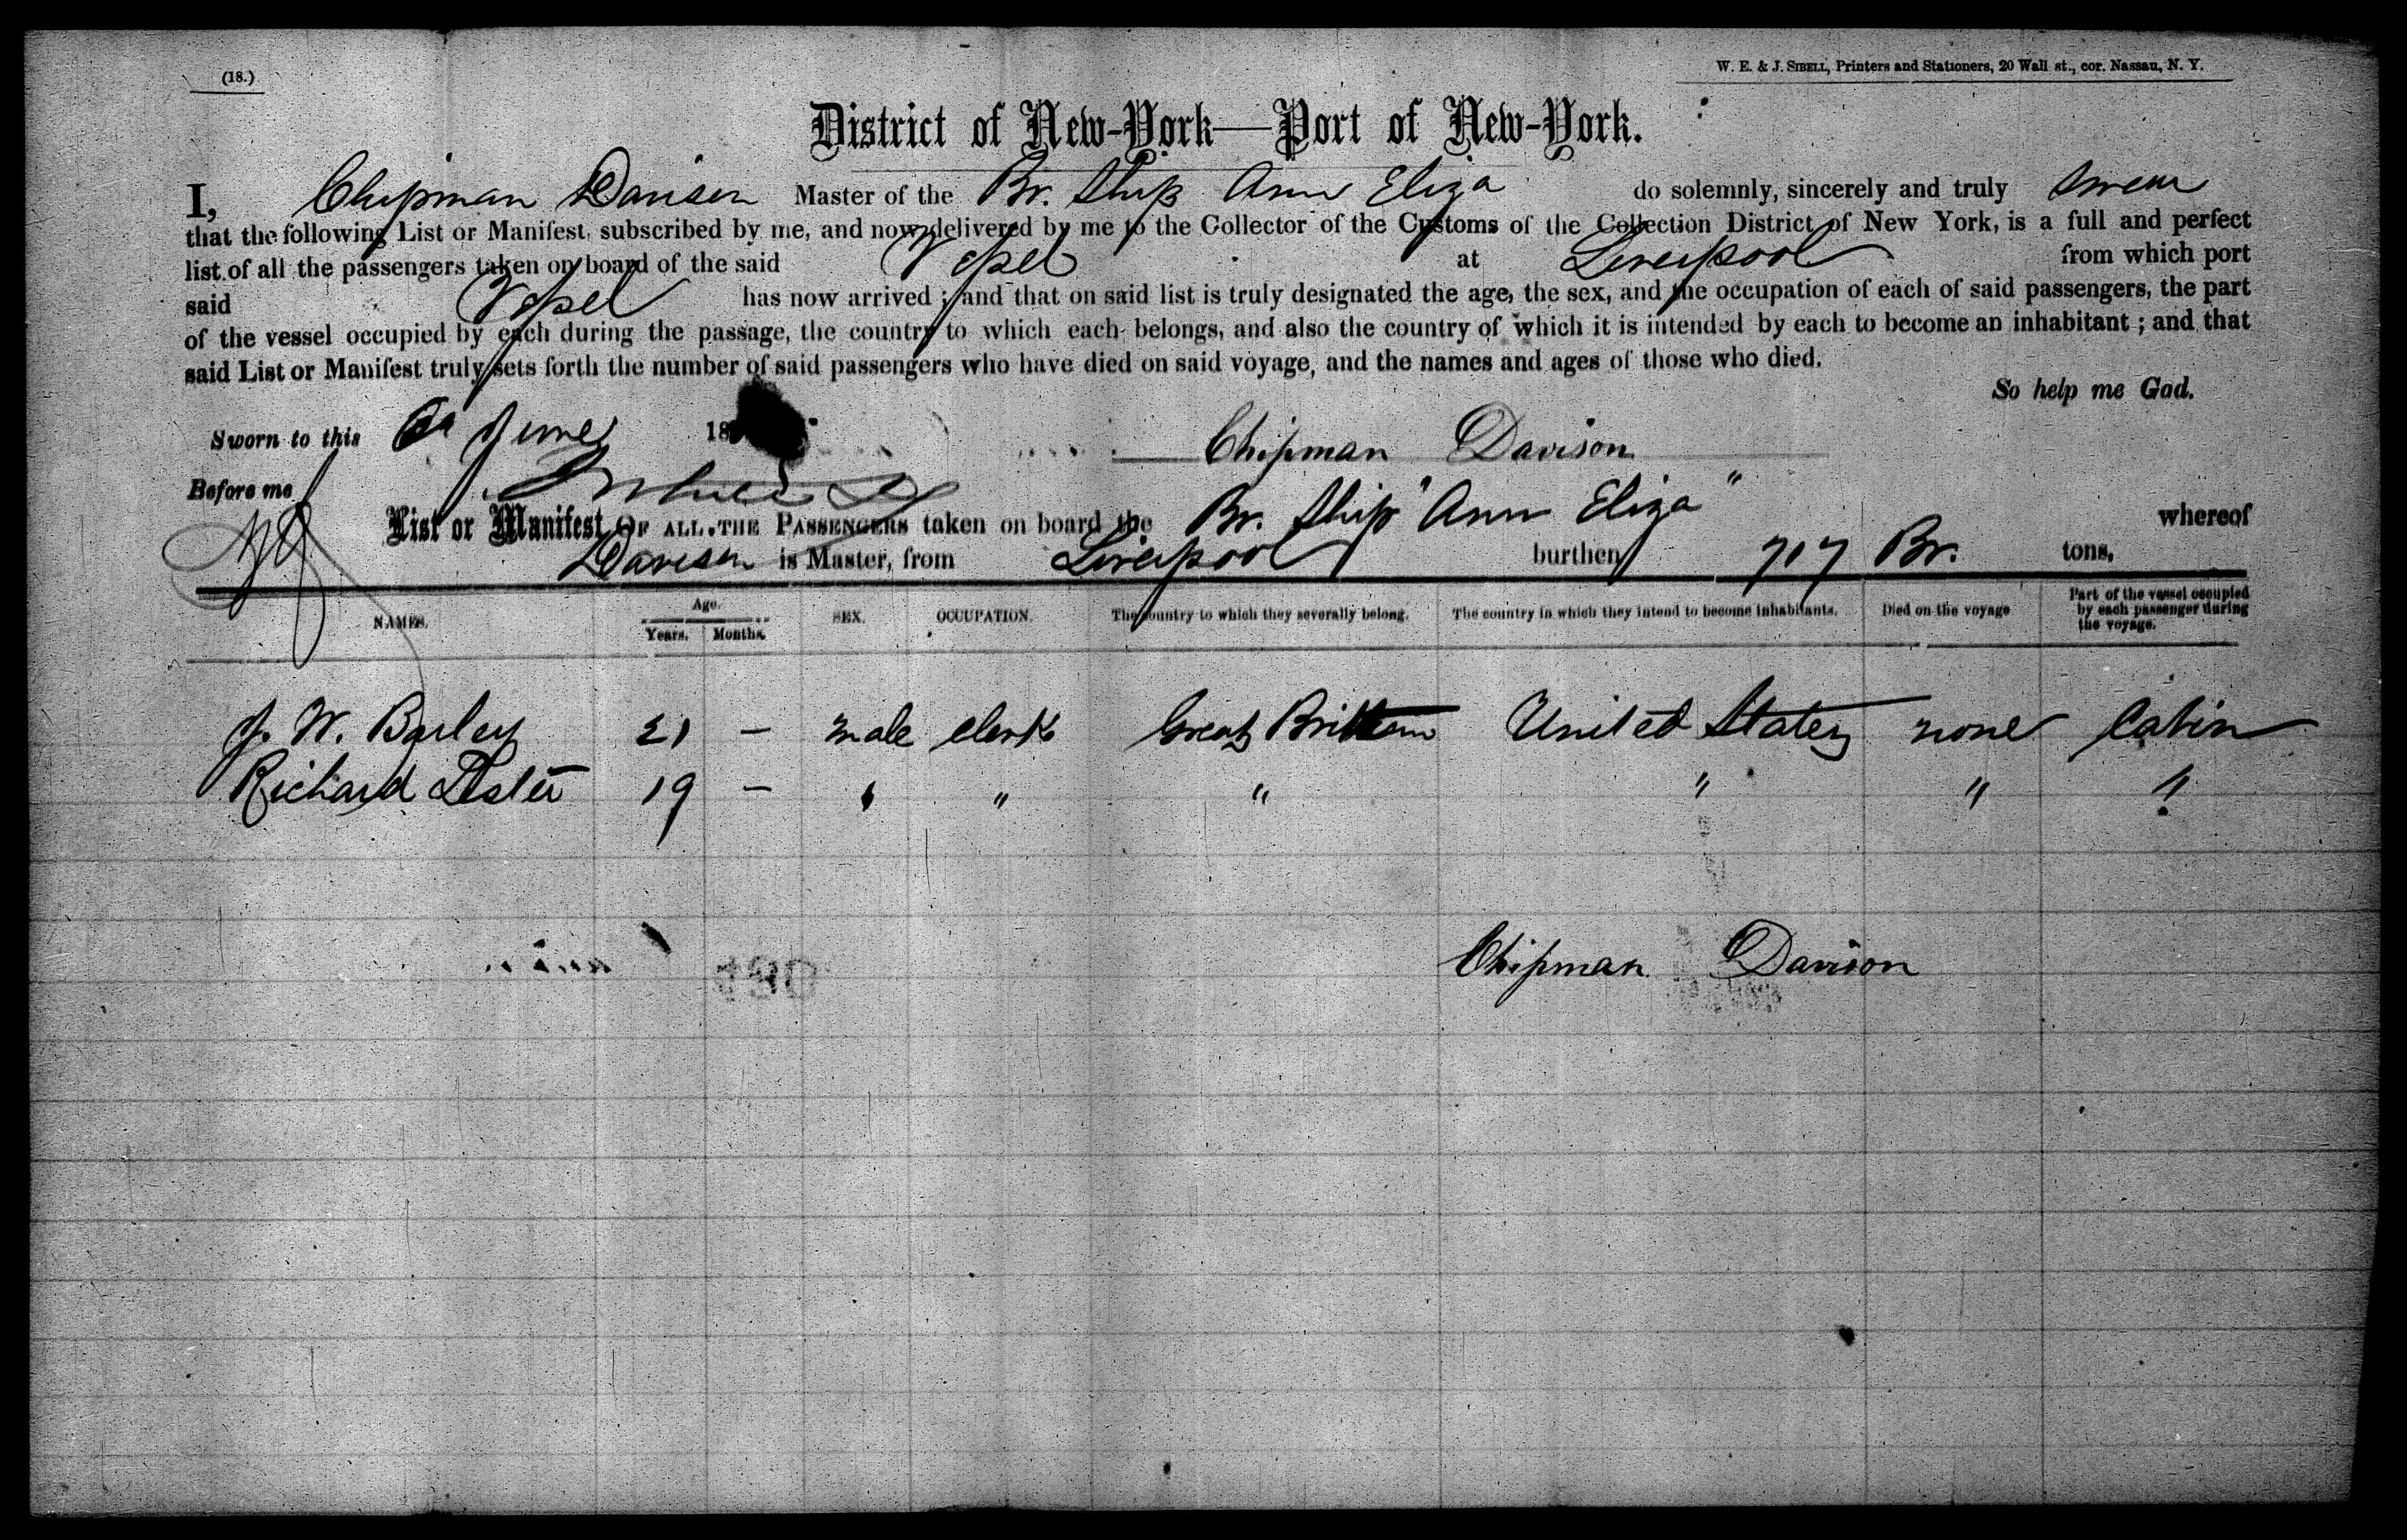 (18.)
W. E. & J. SIBELL, Printers and Stationers, 20 Wall st., cor. Nassau, N. Y.
District of New-York—Port of New-York.
I, Chipman Davison Master of the Br. Ship Ann Eliza do solemnly, sincerely and truly swear
that the following List or Manifest, subscribed by me, and now delivered by me to the Collector of the Customs of the Collection District of New York, is a full and perfect
list of all the passengers taken on board of the said Vessel at Liverpool from which port
said Vessel has now arrived; and that on said list is truly designated the age, the sex, and the occupation of each of said passengers, the part
of the vessel occupied by each during the passage, the country to which each belongs, and also the country of which it is intended by each to become an inhabitant; and that
said List or Manifest truly sets forth the number of said passengers who have died on said voyage, and the names and ages of those who died.
So help me God.
Sworn to this June 18
Chipman Davison
Before me
List or Manifest OF ALL THE PASSENGERS taken on board the Br. Ship "Ann Eliza" whereof
Davison is Master, from Liverpool burthen 717 Br. tons.
NAMES. Age. Years. Months. SEX. OCCUPATION. The country to which they severally belong. The country in which they intend to become inhabitants. Died on the voyage Part of the vessel occupied by each passenger during the voyage.
J. W. Barley 21 – male clerk Great Brittain United States none Cabin
Richard Lester 19 – " " " " " "
Chipman Davison